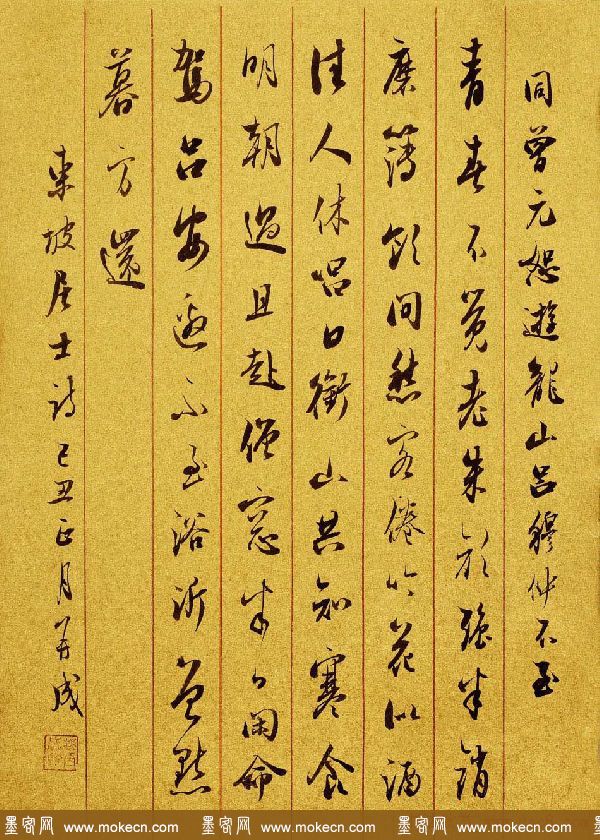 同曾元恕遊龍山呂穆仲不至
青春不覺老朱顏強半銷
磨簿領間愁客倦吟花似酒
佳人休唱日銜山共知寒食
明朝過且赴僧窗半日閑命
駕呂安邀不至浴沂曾點
暮方還
東坡居士詩己丑正月成
墨客网 www.mokecn.com 墨客网 www.mokecn.com 墨客网 www.mokecn.com